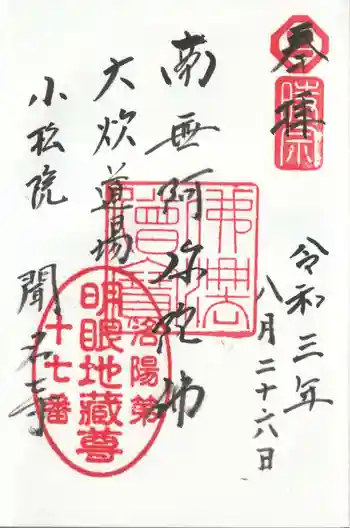 奉拝
令和三年
八月二十六日
南無阿弥陀佛
大炊道場
小松院 聞名寺
洛陽第
明眼地蔵尊
十七番